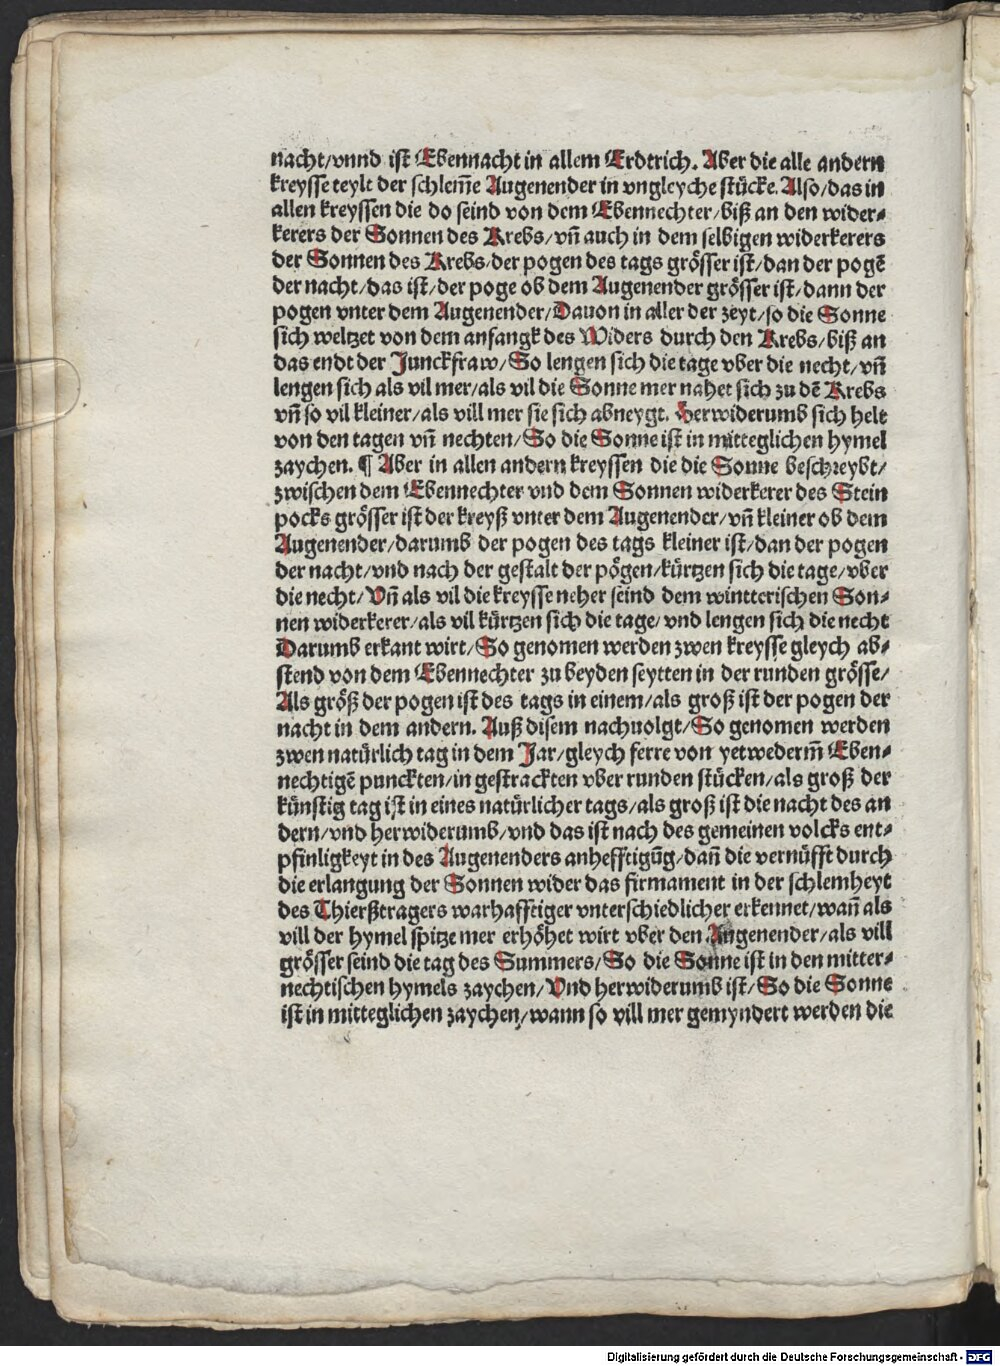 nacht/vnnd ist Ebennacht in allem Erdtrich. Aber die alle andern
kreysse teylt der schlem̄e Augenender in vngleyche stücke. Also/das in
allen kreyssen die do seind von dem Ebennechter/biß an den wider⸗
kerers der Sonnen des Krebs/vn̄ auch in dem selbigen widerkerers
der Sonnen des Krebs/der pogen des tags grösser ist/dan der pogē
der nacht/das ist/der poge ob dem Augenender grösser ist/dann der
pogen vnter dem Augenender/Dauon in aller der zeyt/so die Sonne
sich weltzet von dem anfangk des Widers durch den Krebs/biß an
das endt der Junckfraw/So lengen sich die tage vber die necht/vn̄
lengen sich als vil mer/als vil die Sonne mer nahet sich zu dē Krebs
vn̄ so vil kleiner/als vill mer sie sich abneygt. Herwiderumb sich helt
von den tagen vn̄ nechten/So die Sonne ist in mitteglichen hymel
zaychen. ¶ Aber in allen andern kreyssen die die Sonne beschreybt/
zwischen dem Ebennechter vnd dem Sonnen widerkerer des Stein
pocks grösser ist der kreyß vnter dem Augenender/vn̄ kleiner ob dem
Augenender/darumb der pogen des tags kleiner ist/dan der pogen
der nacht/vnd nach der gestalt der pögen/kürtzen sich die tage/vber
die necht/Vn̄ als vil die kreysse neher seind dem wintterischen Son⸗
nen widerkerer/als vil kürtzen sich die tage/vnd lengen sich die necht
Darumb erkant wirt/So genomen werden zwen kreysse gleych ab⸗
stend von dem Ebennechter zu beyden seytten in der runden grösse/
Als größ der pogen ist des tags in einem/als groß ist der pogen der
nacht in dem andern. Auß disem nachuolgt/So genomen werden
zwen natürlich tag in dem Jar/gleych ferre von yetwederm̄ Eben⸗
nechtigē punckten/in gestrackten vber runden stücken/als groß der
künstig tag ist in eines natürlicher tags/als groß ist die nacht des an
dern/vnd herwiderumb/vnd das ist nach des gemeinen volcks ent⸗
pfinligkeyt in des Augenenders anhefftigūg/dan̄ die vernüfft durch
die erlangung der Sonnen wider das firmament in der schlemheyt
des Thierßtragers warhafftiger vnterschiedlicher erkennet/wan̄ als
vill der hymel spitze mer erhöhet wirt vber den Augenender/als vill
grösser seind die tag des Summers/So die Sonne ist in den mitter⸗
nechtischen hymels zaychen/Vnd herwiderumb ist/So die Sonne
ist in mitteglichen zaychen/wann so vill mer gemyndert werden die
Digitalisierung gefördert durch die Deutsche Forschungsgemeinschaft - DFG